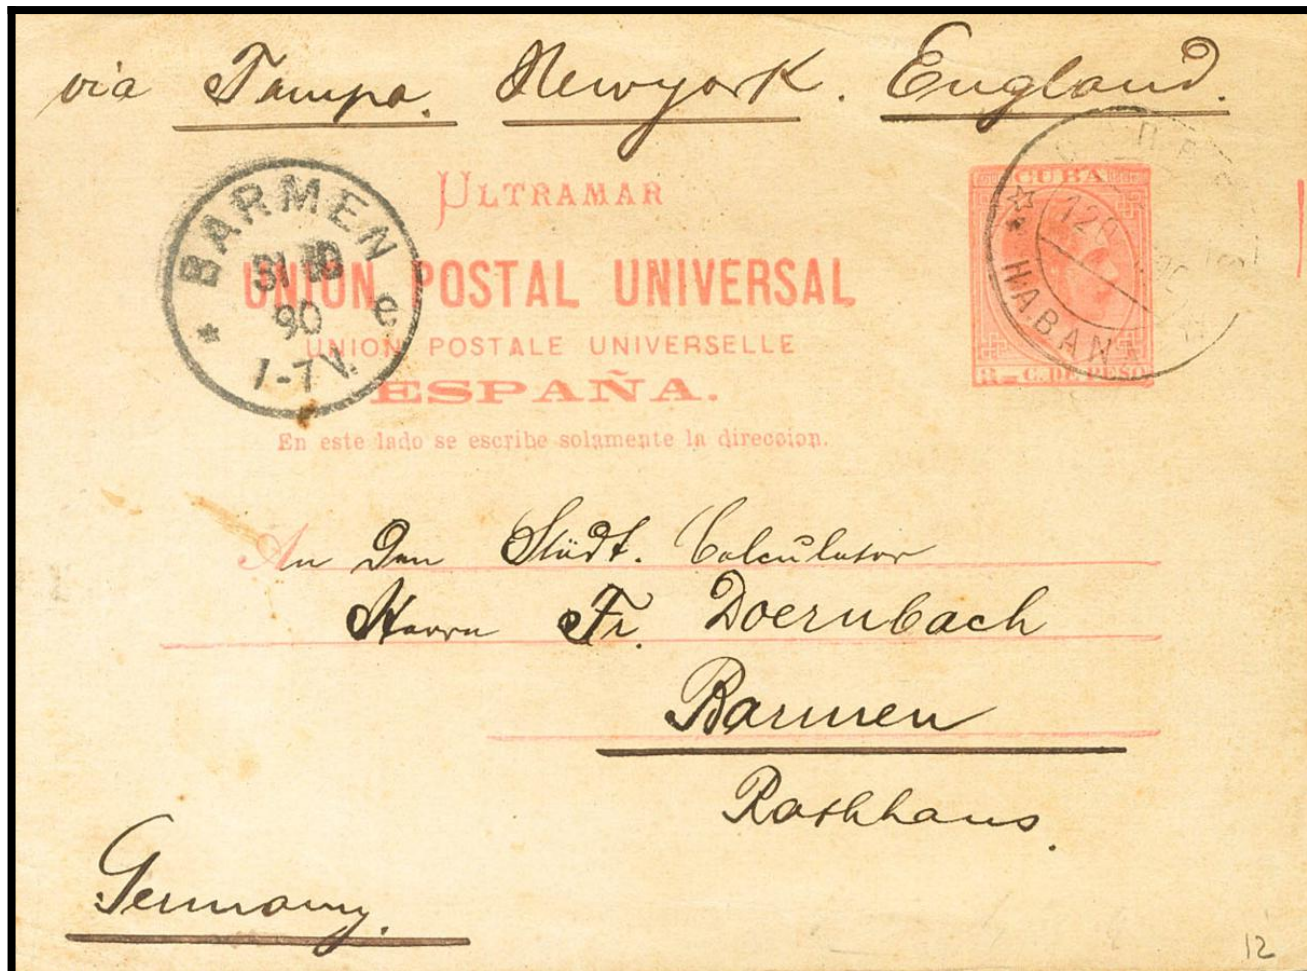 via Tampa. Newyork. England.
ULTRAMAR
UNION POSTAL UNIVERSAL
UNION POSTALE UNIVERSELLE
ESPAÑA.
En este lado se escribe solamente la direccion.
CUBA
C. DE PESO
HABANA
* BARMEN
31 10
90
1-7V.
e
An Den Städt. Calculator
Herrn Fr. Doernbach
Barmen
Rathhaus.
Germany.
12